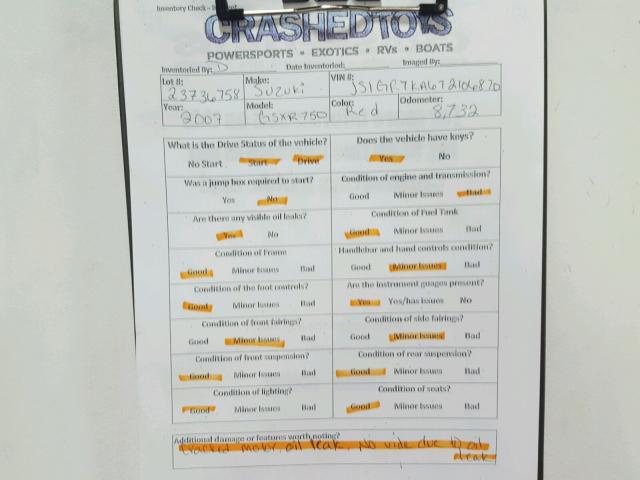 Inventory Check -
CRASHEDTOYS
POWERSPORTS • EXOTICS • RVs • BOATS
Inventoried By: D Date Inventoried: Imaged By:
Lot #: Make: VIN #:
23736758 Suzuki JS1GR7KA672106870
Year: Model: Color: Odometer:
2007 GSXR750 Red 8,732
What is the Drive Status of the vehicle? Does the vehicle have keys?
No Start Start Drive Yes No
Was a jump box required to start? Condition of engine and transmission?
Yes No Good Minor Issues Bad
Are there any visible oil leaks? Condition of Fuel Tank
Yes No Good Minor Issues Bad
Condition of Frame Handlebar and hand controls condition?
Good Minor Issues Bad Good Minor Issues Bad
Condition of the foot controls? Are the instrument guages present?
Good Minor Issues Bad Yes Yes/has issues No
Condition of front fairings? Condition of side fairings?
Good Minor Issues Bad Good Minor Issues Bad
Condition of front suspension? Condition of rear suspension?
Good Minor Issues Bad Good Minor Issues Bad
Condition of lighting? Condition of seats?
Good Minor Issues Bad Good Minor Issues Bad
Additional damage or features worth noting?
cracked motor, oil leak, No vide due to oil
leak